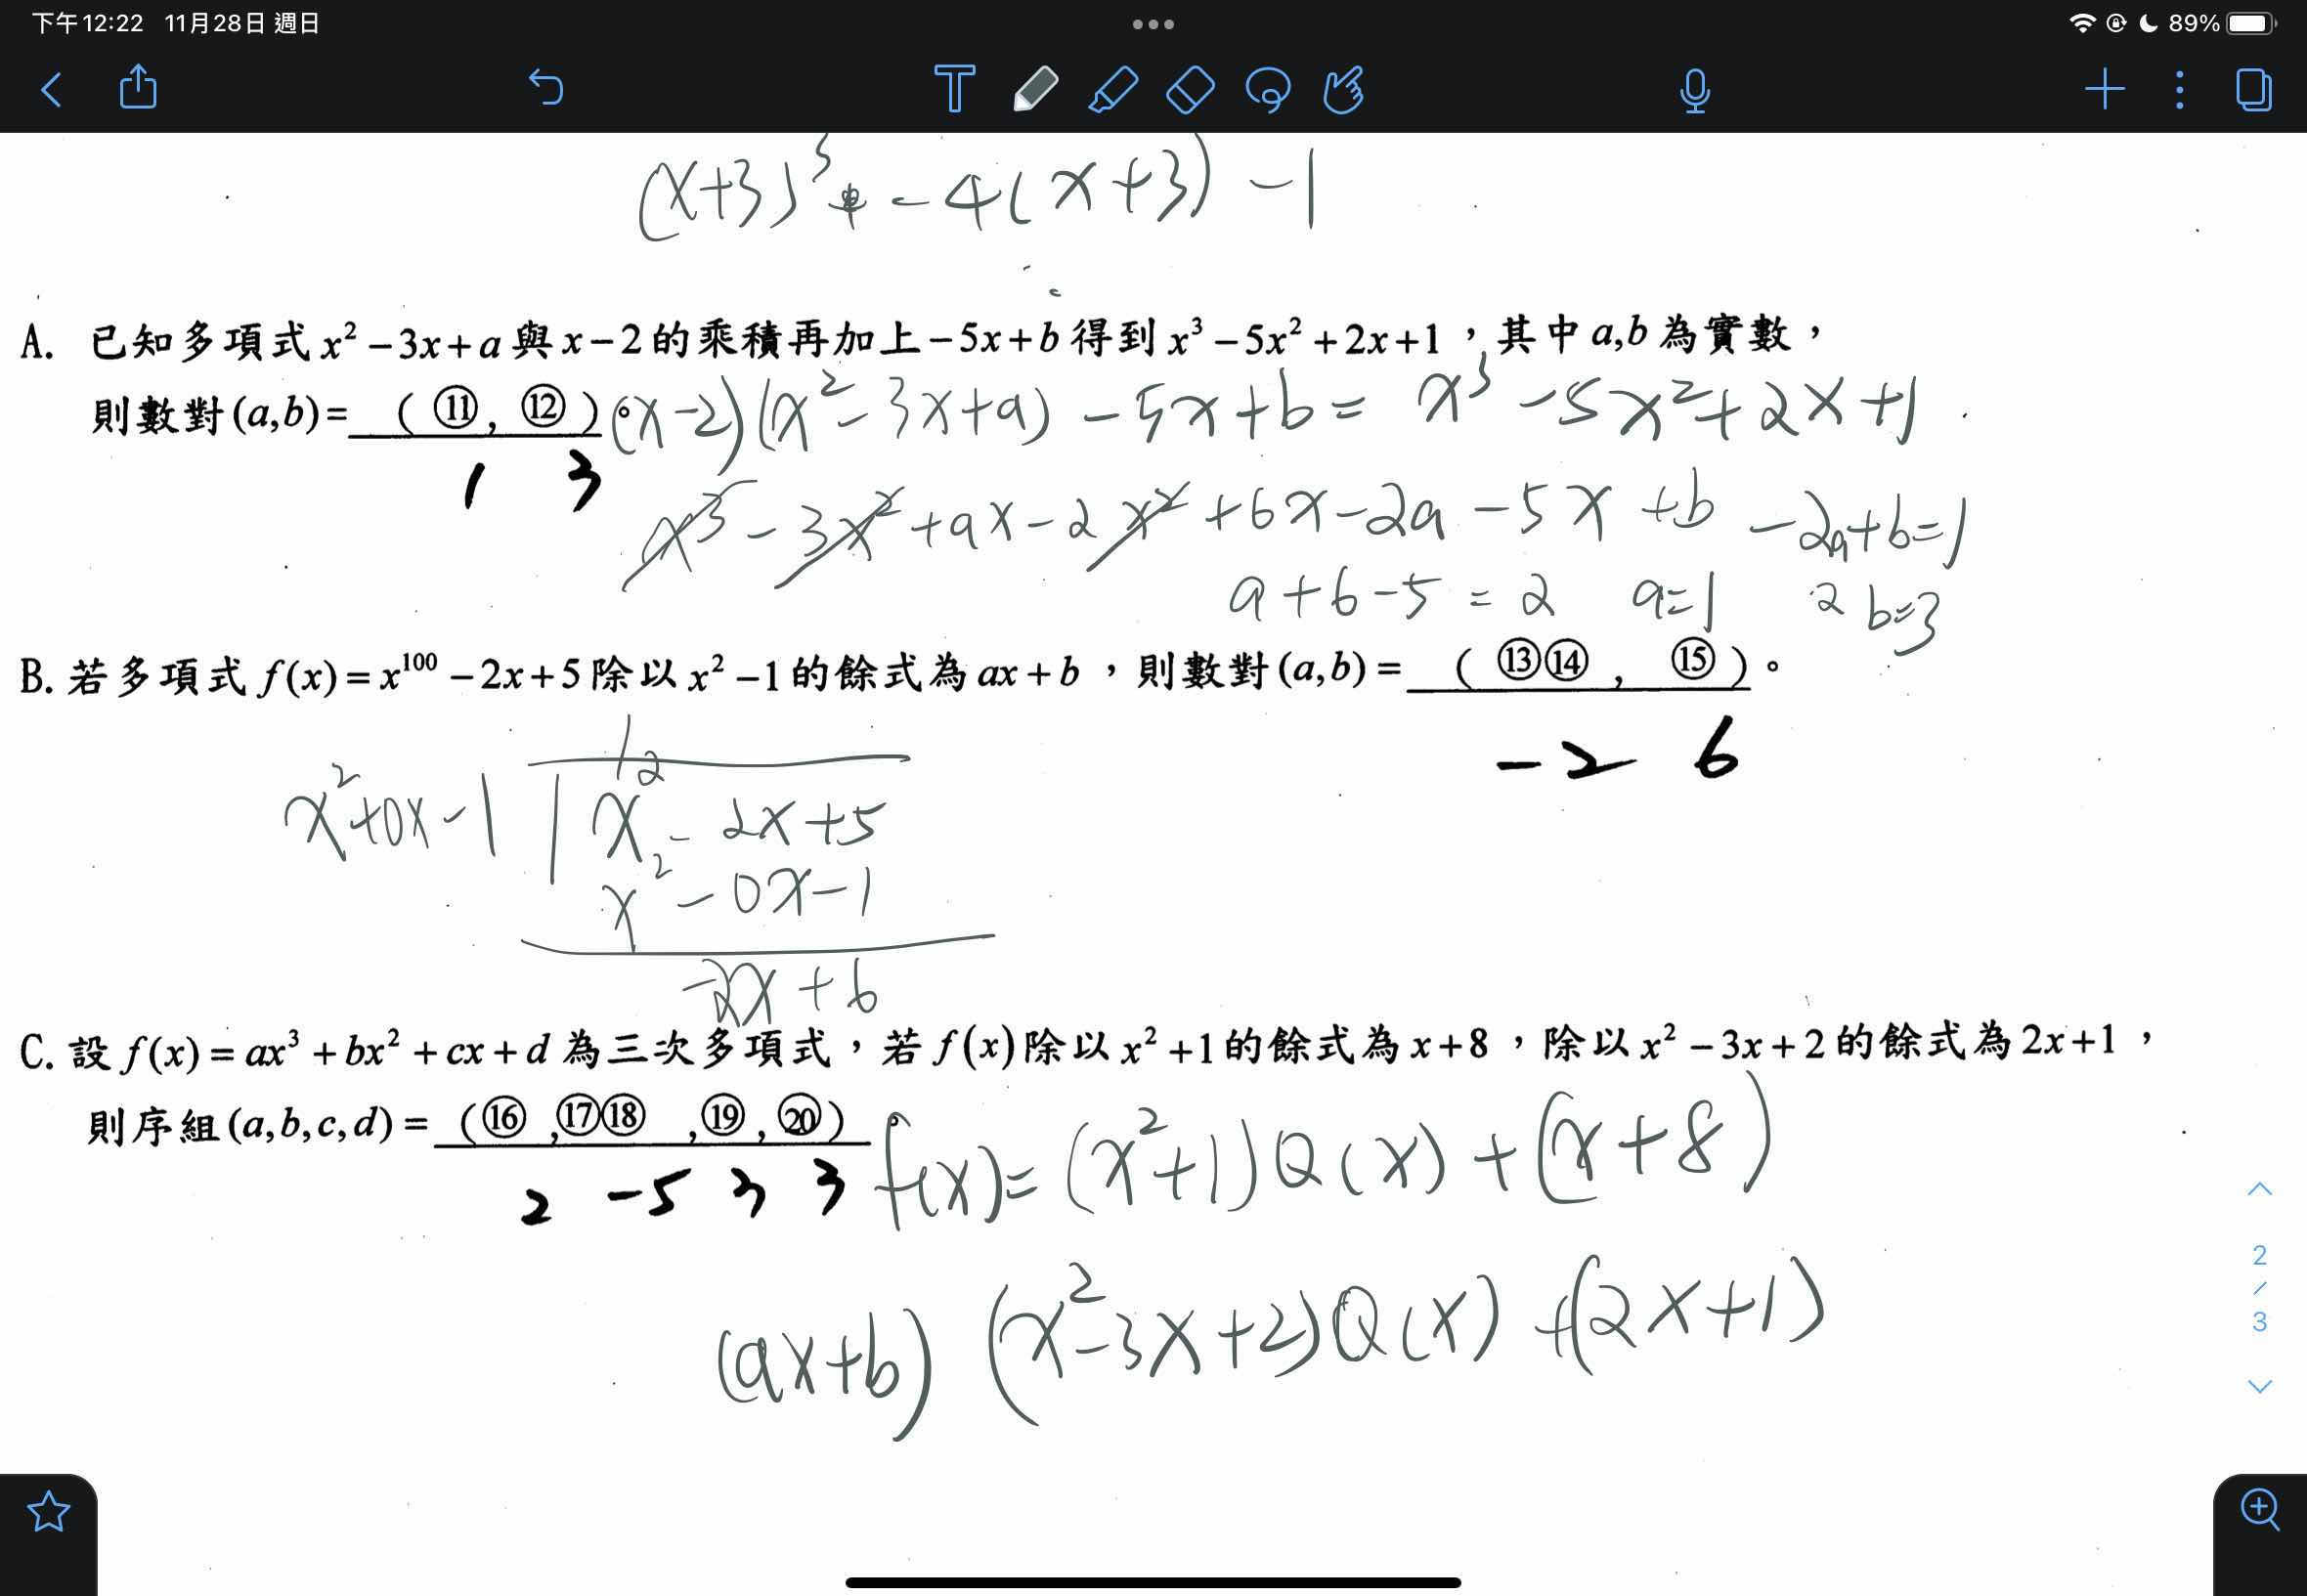 下午12:22 11月28日 週日
89%
(x+3)³ - 4(x+3) - 1
A. 已知多項式 x² - 3x + a 與 x - 2 的乘積再加上 -5x + b 得到 x³ - 5x² + 2x + 1，其中 a,b 為實數，
則數對 (a,b) = ( ⑪ , ⑫ ) 。 (x-2)(x²-3x+a) -5x+b = x³-5x²+2x+1
1 3
x³-3x²+ax-2x²+6x-2a-5x+b -2a+b=1
a+6-5=2 a=1 2 b=3
B. 若多項式 f(x) = x¹⁰⁰ - 2x + 5 除以 x² - 1 的餘式為 ax + b ，則數對 (a,b) = ( ⑬⑭ , ⑮ ) 。
-2 6
1
x²+0x-1 x²-2x+5
x²-0x-1
-2x+6
C. 設 f(x) = ax³ + bx² + cx + d 為三次多項式，若 f(x) 除以 x² + 1 的餘式為 x + 8 ，除以 x² - 3x + 2 的餘式為 2x + 1 ，
則序組 (a,b,c,d) = ( ⑯ , ⑰⑱ , ⑲ , ⑳ ) 。 f(x) = (x²+1)Q(x) + (x+8)
2 -5 3 3
(ax+b) (x²-3x+2)Q(x) + (2x+1)
2
/
3